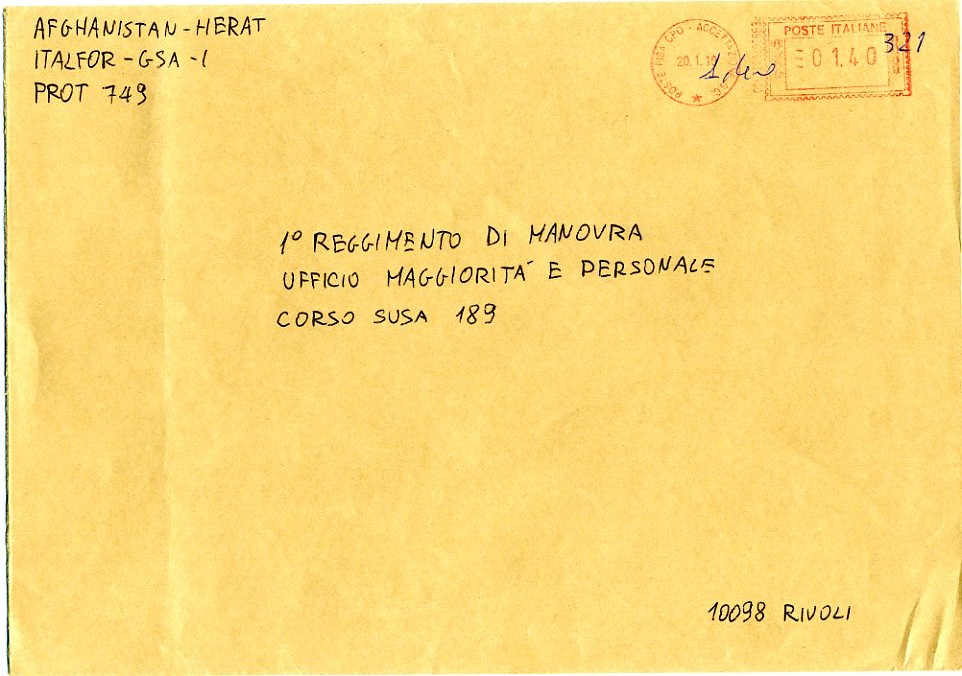 AFGHANISTAN - HERAT
ITALFOR - GSA - 1
PROT 749
POSTE PISA CPO - ACCETTAZ
20.1.10
POSTE ITALIANE
E 01.40
321
1° REGGIMENTO DI MANOVRA
UFFICIO MAGGIORITA' E PERSONALE
CORSO SUSA 189
10098 RIVOLI